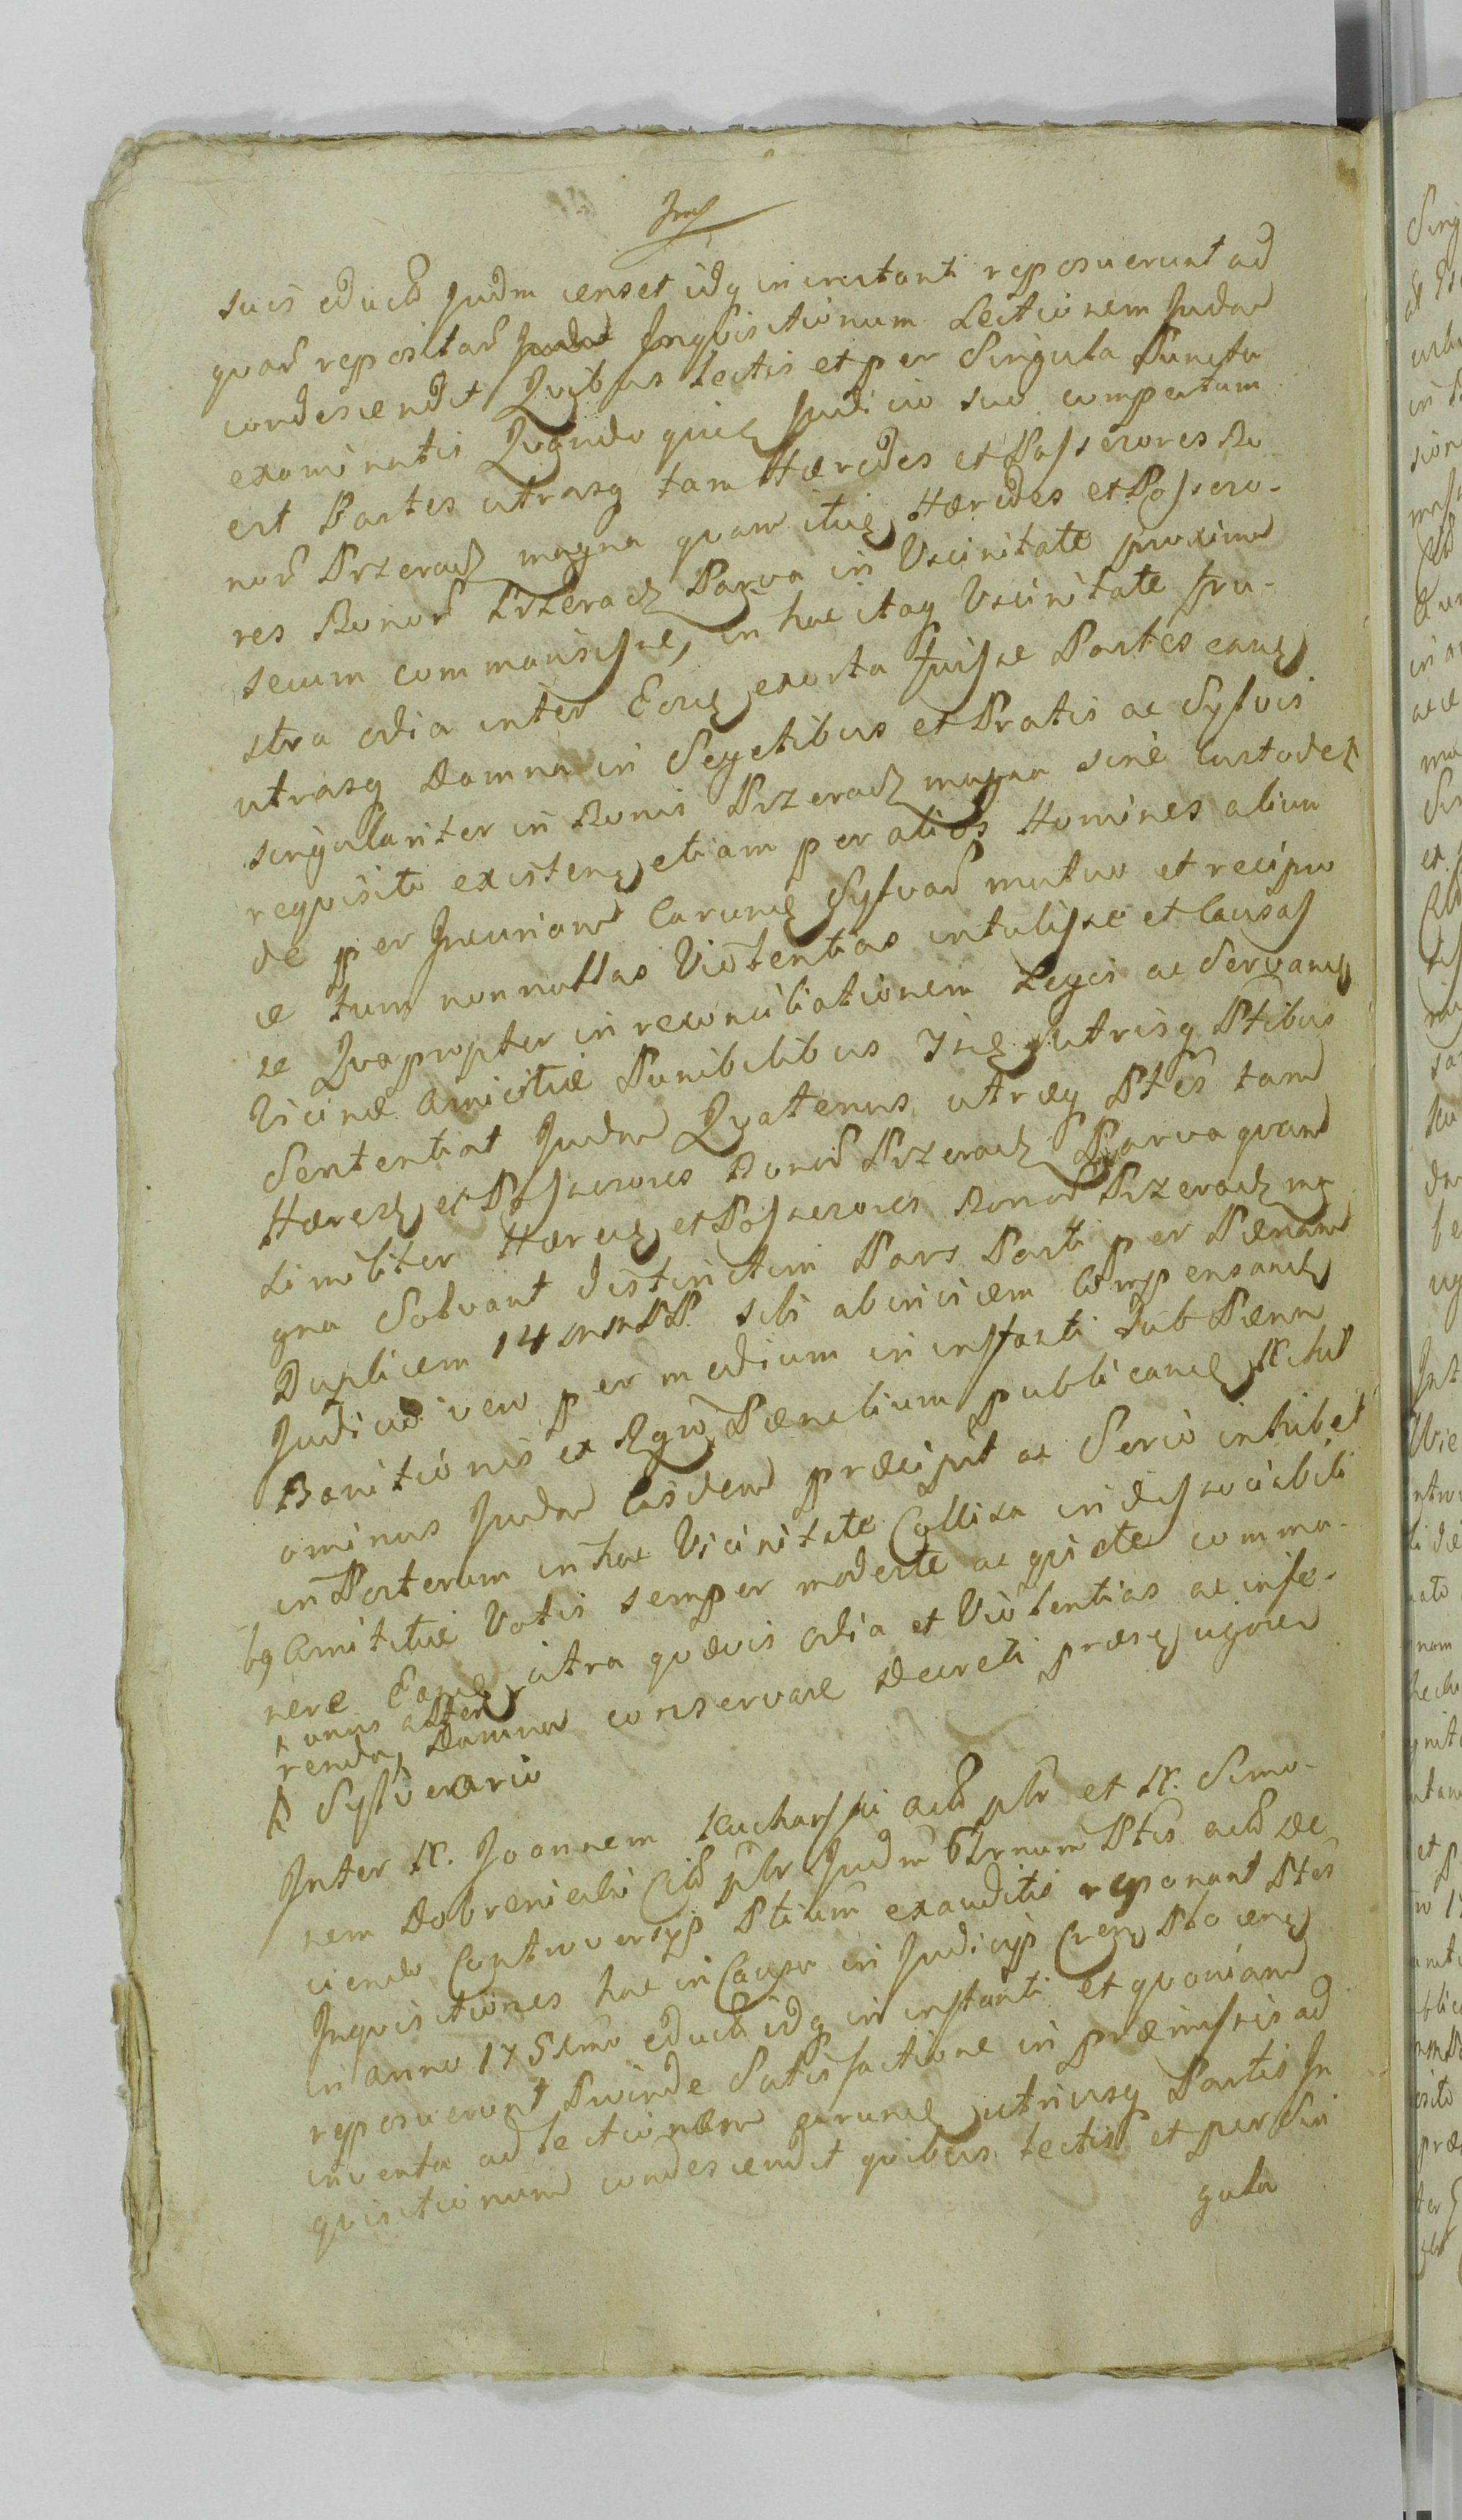 suis educd Judm censet idq in instanti reposuerunt ad
quar repositar Inquisitionum Lectionem Judm
condescendit Quibus Lectis et per Singula Puncta
examinatis Quando quid Judicio suo compertum
est Partes utrasq tam Hæredes et Possessores Bo
nor Przeradz magna quam itid Hæredes et Possesso-
res Bonor Przeradz Parva in Vicinitate proxima
secum commansisse, in hac itaq Vicinitate fru-
stra odia inter Eosd exorta fuisse Partes easd
utrasq Damna in Segetibus et Pratis ac Sylvis
singulariter in Bonis Przeradz magna sine Custode
requisito existen etiam per alios Homines aliun
de per Incuriam Earund Sylvar mutuo et recipro
ce tum nonnullas Violentias intulisse et causas
se Quapropter in reconciliationem Legis ac Servand
Vicinæ Amicitiæ Punibilibus Iisd utrisq Ptibus
Sententiat Judm Quatenus utræq Ptes tam
Hæred et Possessores Bonor Przeradz Parva quam
similiter Hæred et Possessores Bonor Przeradz ma
gna Solvant districtim Pars Parti per Pænam
Duplicem 14 sibi abinvicem Compensand
Judicio vero per medium in instanti sub Pæna
Banitionis ex Rgro Pænalium publicand Nihil
ominus Judm Easdem præcipit ac Serio inhibet
in Posterum in hac Vicinitate Collisa indissociabili
bq Amicitiæ Votis semper modeste ac quiete comma-
nere Easd citra quævis odia et Violentias ac infe-
unus alteri
renda Damna conservare Decreti præs vigore
Sylverario
Inter N. Joannem Kucharski actd plr et N. Simo-
nem Dobrenicki Citd plr Judm Trnum Ptis actd de
ciendo Controversys Ptium exauditis reponant Ptes
Inquisitiones hac in Causa in Judicys Cren Plocen
in anno 175 educd idq in instanti et quoniam
reposuerunt Proinde Satisfactione in præmissis ad
inventa ad lectionem earund utriusq Partis In
quisitionum condescendit quibus lectis et per Sin
gula